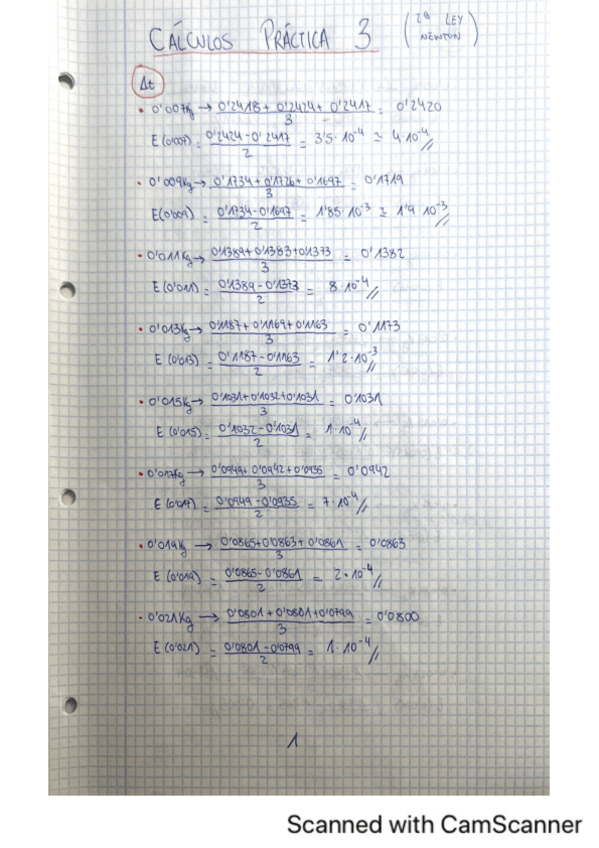 CÁLCULOS PRÁCTICA 3 (2ª LEY NEWTON)
Δt
• 0'007Kg → (0'2418 + 0'2424 + 0'2417)/3 = 0'2420
E (0'007) = (0'2424 - 0'2417)/2 = 3'5·10⁻⁴ ≃ 4·10⁻⁴//
• 0'009Kg → (0'1734 + 0'1726 + 0'1697)/3 = 0'1719
E(0'009) = (0'1734 - 0'1697)/2 = 1'85·10⁻³ ≃ 1'9·10⁻³//
• 0'011Kg → (0'1389 + 0'1383 + 0'1373)/3 = 0'1382
E (0'011) = (0'1389 - 0'1373)/2 = 8·10⁻⁴//
• 0'013Kg → (0'1187 + 0'1169 + 0'1163)/3 = 0'1173
E (0'013) = (0'1187 - 0'1163)/2 = 1'2·10⁻³//
• 0'015Kg → (0'1031 + 0'1032 + 0'1031)/3 = 0'1031
E (0'015) = (0'1032 - 0'1031)/2 = 1·10⁻⁴//
• 0'017Kg → (0'0949 + 0'0942 + 0'0935)/3 = 0'0942
E (0'017) = (0'0949 - 0'0935)/2 = 7·10⁻⁴//
• 0'019Kg → (0'0865 + 0'0863 + 0'0861)/3 = 0'0863
E (0'019) = (0'0865 - 0'0861)/2 = 2·10⁻⁴//
• 0'021Kg → (0'0801 + 0'0801 + 0'0799)/3 = 0'0800
E (0'021) = (0'0801 - 0'0799)/2 = 1·10⁻⁴//
1
Scanned with CamScanner